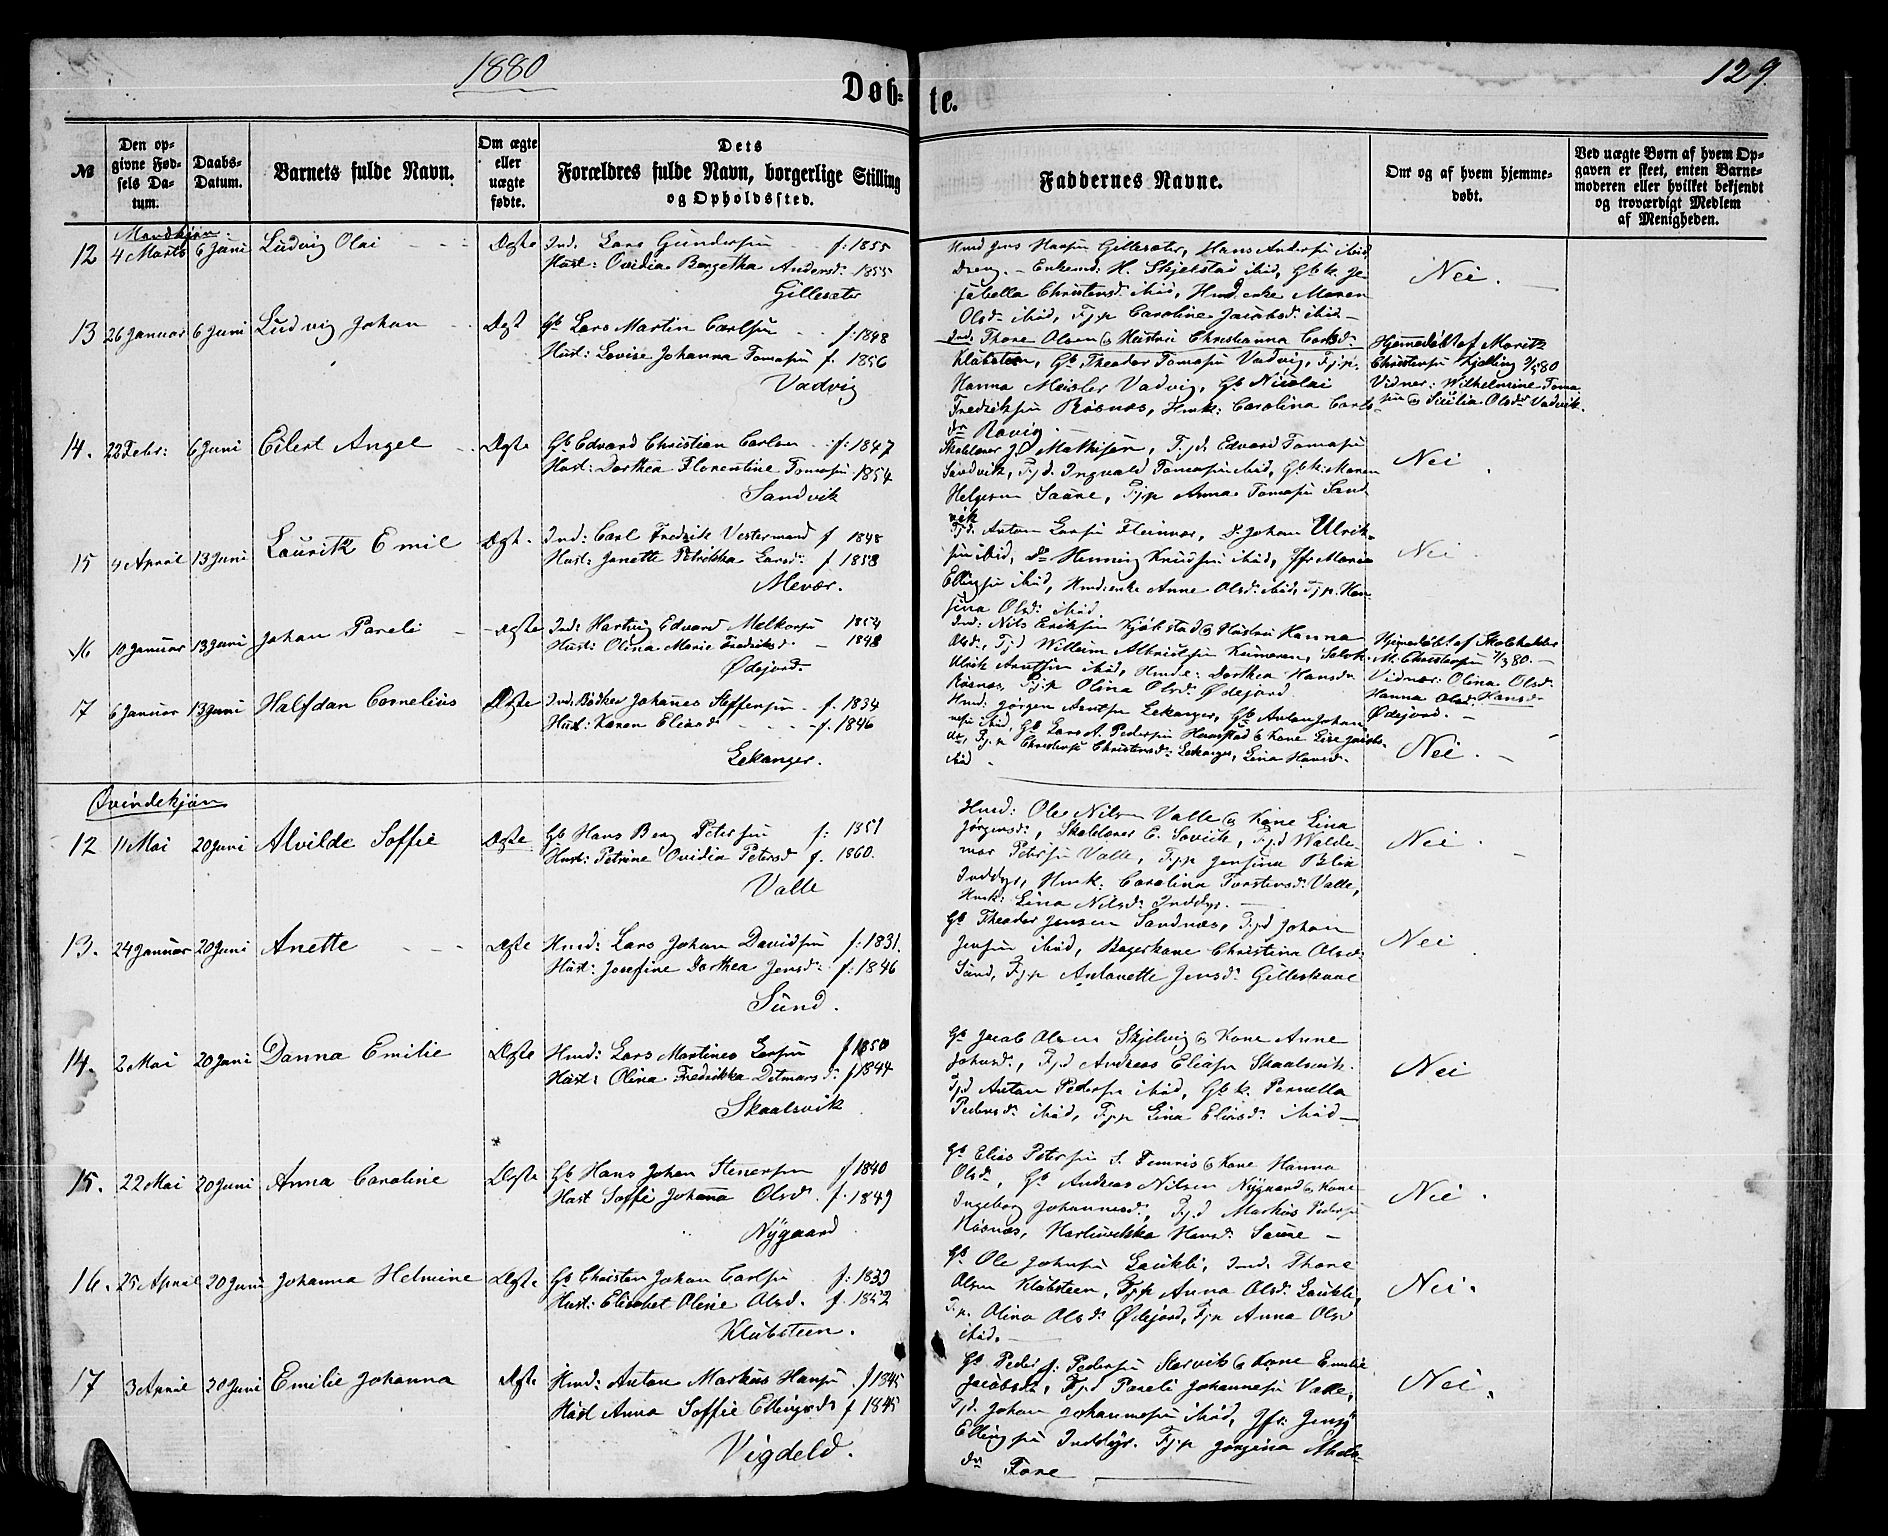 1880
129.
Døb-
te.
№
Den op-
givne Fød-
sels Da-
tum.
Daabs-
Datum.
Barnets fulde Navn.
Om ægte
eller
uægte
fødte.
Dets
Forældres fulde Navn, borgerlige Stilling
og Opholdssted.
Faddernes Navne.
Om og af hvem hjemme-
døbt.
Ved uægte Børn af hvem Op-
gaven er skeet, enten Barne-
moderen eller hvilket bekjendt
og troværdigt Medlem
af Menigheden.
Mandkjøn:
12 4 Marts 6 Juni Ludvig Olai Ægte Ind. Lars Gundersen f: 1855
Hust: Ovidia Bergetha Andersd: 1855
Gillesæter
Hmd Jens Hansen Gillesæter, Hans Andersen ibid
Dreng. Enkemd: H. Skjelstad ibid, Gbk. Je-
sabella Christensd. ibid, Hmd.enke Maren
Olsd: ibid, Fjp Caroline Jacobsd. ibid
Nei.
13 26 Januar 6 Juni Ludvig Johan Ægt Gb Lars Martin Carlsen f: 1848
Hust: Lovise Johanna Tomasen f. 1856
Vadvig
Ind. Thore Olsen & Hustru Christianna Carlsd:
Klubsteen, Gb. Theodor Tomasen Vadvig, Fjp.
Hanna Meisler Vadvig, Gb Nicolai
Fredriksen Røsnæs, Hmk: Carolina Carls-
dr Ravig
Hjemedøbt af Moritz
Christensen Kjelling 3/5 80
Vidner: Wilhelmine Toma
sen & Sicilia Olsdr Vadvik.
14. 22 Febr: 6 Juni Eilert Angel Ægte Gb Edvard Christian Carlsen f: 1847
Hust: Dorthea Florentine Tomasen 1854
Sandvik
Skolelærer J. Mathisen, Fjd. Edvard Tomasen
Sandvik, Fjd. Ingvald Tomasen ibid, Gbk: Maren
Helgesen Saure, Fjp Anna Tomasen Sand
vik
Nei
15 4 April 13 Juni Lauritz Emil Ægt. Ind: Carl Fredrik Vestermand f 1848
Hust: Janette Petrikka Larsd: f 1858
Mevær.
Fjd. Anton Larsen Fleinvær, Do Johan Ulrik-
sen ibid, Do Henning Knudsen ibid, Jfr Maria
Ellingsen ibid, Hmd:enke Anne Olsd: ibid, Fjp. Han-
sina Olsd: ibid
Nei
16 10 Januar 13 Juni Johan Pareli Ægte Ind: Hartvig Edvard Melkorsen 1854
Hust: Olina Marie Fredriksd: 1848
Ødejord
Ind: Nils Eriksen Kjøkstad & Hustru Hanna
Olsd:, Fjd Willum Albrigtsen
Ulrik Arntsen ibid, Dorthea Hansdr
Røsnæs, Fjp Olina Olsd: Ødejord
Hjemedøbt af Skoleholder
M. Christensen 1/3 80.
Vidner: Olina Olsd:
Hanna Olsd: Hansdr
Ødejord.
17 6 Januar 13 Juni Halfdan Cornelius Ægte Ind. Bødker Johannes Steffensen f. 1834
Hust: Karen Eliasd f. 1846
Lekanger.
Hmd: Jørgen Arntsen Lekanger, Gb Anton Johan
nsen ibid, Gb Lars A. Pedersen Havstad & Kone Lise Jacobs-
dr, Fjp Christensd: Lekanger, Lina Hansd.
ibid
Nei.
Qvindekjøn
12 11 Mai 20 Juni Alvilde Soffie Ægte Gb Hans Berg Petersen f: 1851
Hust: Petrine Ovidia Petersd f. 1860.
Valle
Hmd: Ole Nilsen Valle & Kone Lina
Jørgensd:, Skolelærer E. Solvik, Fjd Walde
mar Petersen Valle, Fjp Jensina Blix
Inddyr, Hmk: Carolina Torstensd: Valle,
Hmk: Lina Nilsd: Inddyr.
Nei
13. 24 Januar 20 Juni Anette Ægte Hmd: Lars Johan Davidsen f: 1831.
Hust: Josefine Dorthea Jensd: f: 1846
Sund.
Gb Theodor Jensen Sandnæs, Fjd Johan
Jensen ibid, Bagerkone Christina Olsd:
Sund, Fjp Antonette Jensd: Gilleskaal
Nei
14. 2 Mai 20 Juni Danna Emilie Ægte Hmd: Lars Martines Larsen f 1850
Hust: Olina Fredrikka Ditmarsd: f 1844
Skaalsvik
Gb Jacob Olsen Skjelvig & Kone Anne
Johnsd:, Fjd Andreas Eliasen Skaalsvik.
Fjd Anton Pedersen ibid, Gbk. Pernella
Pedersd: ibid, Fjp Lina Eliasd: ibid
Nei
15. 22 Mai 20 Juni Anna Caroline Ægte Gb Hans Johan Stenersen f 1840
Hust Soffie Johanna Olsd. f. 1849
Nygaard
Gb Elias Petersen S. Femris & Kone Hanna
Olsd:, Gb Andreas Nilsen Nygaard & Kone
Ingeborg Johannesd:, Fjd Markus Pedersen
Røsnæs, Hansd: Saure
Nei.
16. 25 April 20 Juni Johanna Helmine Ægte Gb Christen Johan Carlsen f: 1839
Hust: Elisabet Oline Olsd. f. 1852
Klubsteen.
Gb Ole Johnsen Laukli, Ind: Thore
Olsen Klubsteen, Fjp Anna Olsd: Laukli,
Fjp. Olina Olsd: Ødejord, Fjp Anna Olsd
ibid.
Nei.
17 3 April 20 Juni Emilie Johanna Ægte Hmd: Anton Markus Hansen f 1845
Hust Anna Soffie Ellingsd: f 1845
Vigdeld.
Gb Peder J. Pedersen Storvik & Kone Emilie
Jacobsdr, Fjd Pareli Johannesen Valle,
Fjd. Johan Johannesen ibid, Gfr: Jens
Ellingsen Inddyr. Fjp Jørgina Abels-
dr Fore
Nei.